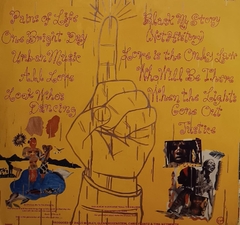 Pains of Life
One Bright Day
Urban Music
All Love
Look Who's
Dancing
Black My Story
(Not History)
Love is the Only Law
Who Will Be There
When the Lights
Gone Out
Justice